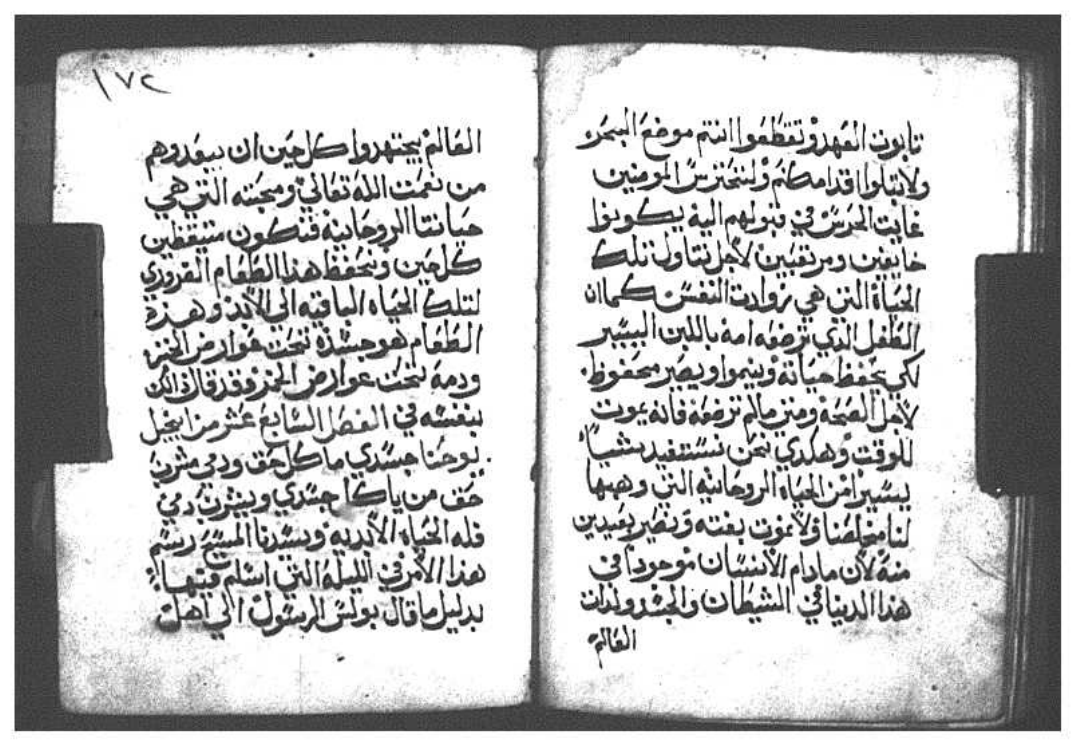 تابوت العهد وتقطعوا انتم موضع البحر
ولا تبلوا اقدامكم وليحترس المومنين
غايت الحرس في قبولهم اليه يكونوا
خايفين ومرتقبين لاجل تناول تلك
الحياة التي هي زوادت النفس كما ان
الطفل الذي ترضعه امه باللبن اليسير
لكي يحفظ حياته وينموا ويصير محفوظ
لاجل الصحة ومتي مالم ترضعه فانه يموت
للوقت وهكدي نحن نستفيد شياً
يسيراً من الحياه الروحانيه التي وهبها
لنا مخلصنا ولا نموت بغته ونصير بعيدين
منه لان مادام الانسان موجوداً في
هذا الدنيا في الشيطان والجسد ولذات
العالم
١٧٢
العالم يجتهدوا كل حين ان يبعدوهم
من نعمت الله تعالي ومحبته التي هي
حياتنا الروحانيه فنكون متيقظين
كل حين ونحفظ هذا الطعام الضروري
لتلك الحياه الباقيه الي الابد وهذه
الطعام هو جسده تحت عوارض الخبز
ودمه تحت عوارض الخمر وقد قال ذالك
بنفسه في الفصل السابع عشر من انجيل
يوحنا جسدي ماكل حق ودمي مشرب
حق من ياكل جسدي ويشرب دمي
فله الحياه الابديه وسيدنا المسيح رسم
هذا الامر في الليله التي اسلم فيها
بدليل ما قال بولس الرسول الي اهل